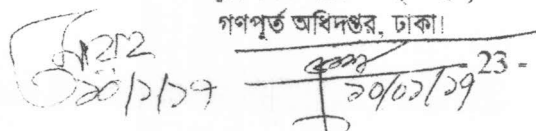 গণপূর্ত অধিদপ্তর, ঢাকা।
- 23 -
২০/১/১৭
২০/০১/১৭